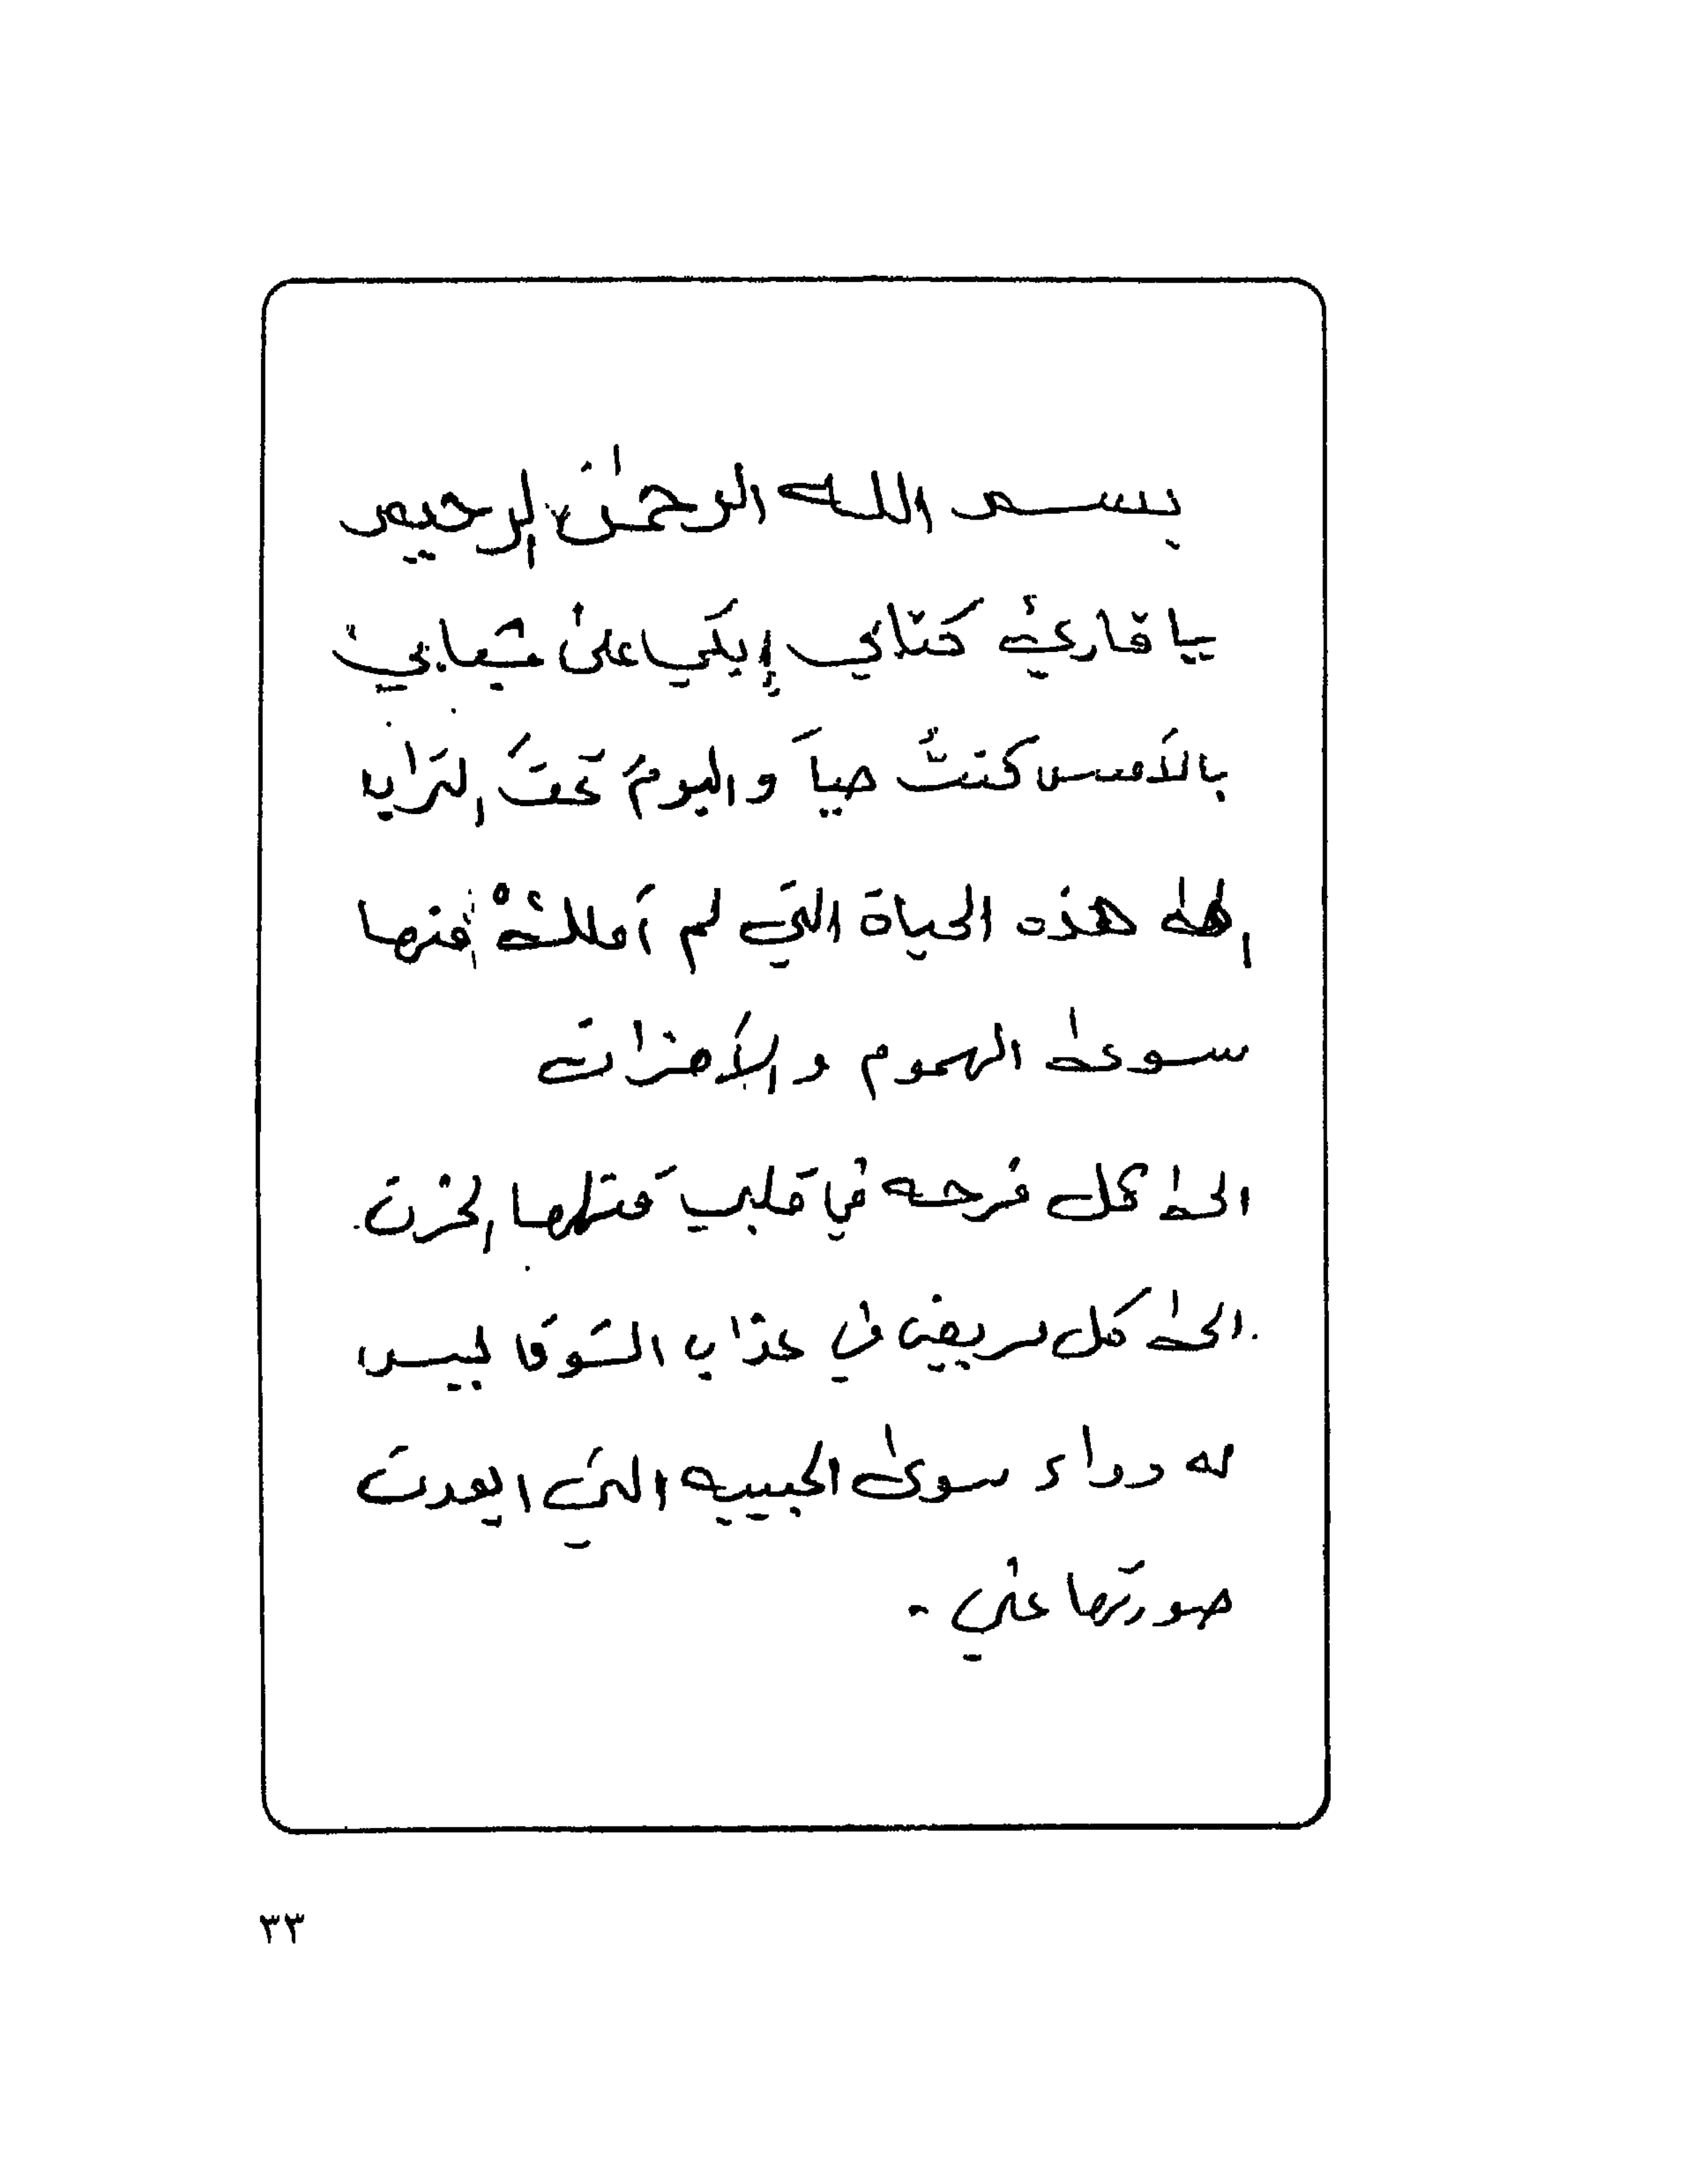 بسم الله الرحمن الرحيم
يا قارئ كتابي إبكي على شبابي
بالأمس كنتُ حياً واليومَ تحتَ التراب
الى هذه الحياة التي لم أملكْ منها
سوى الهموم والأحزان
الى كل فرحه في قلبي قتلها الحزن
الى كل مريض في عذاب الشوق ليس
له دواء سوى الحبيبه التي ابعدت
صورتها عني .
٣٣